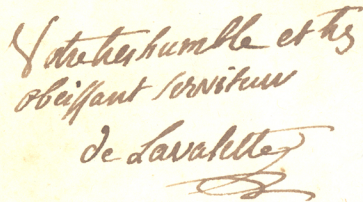 Votre tres humble et tres
obeissant serviteur
de Lavalette